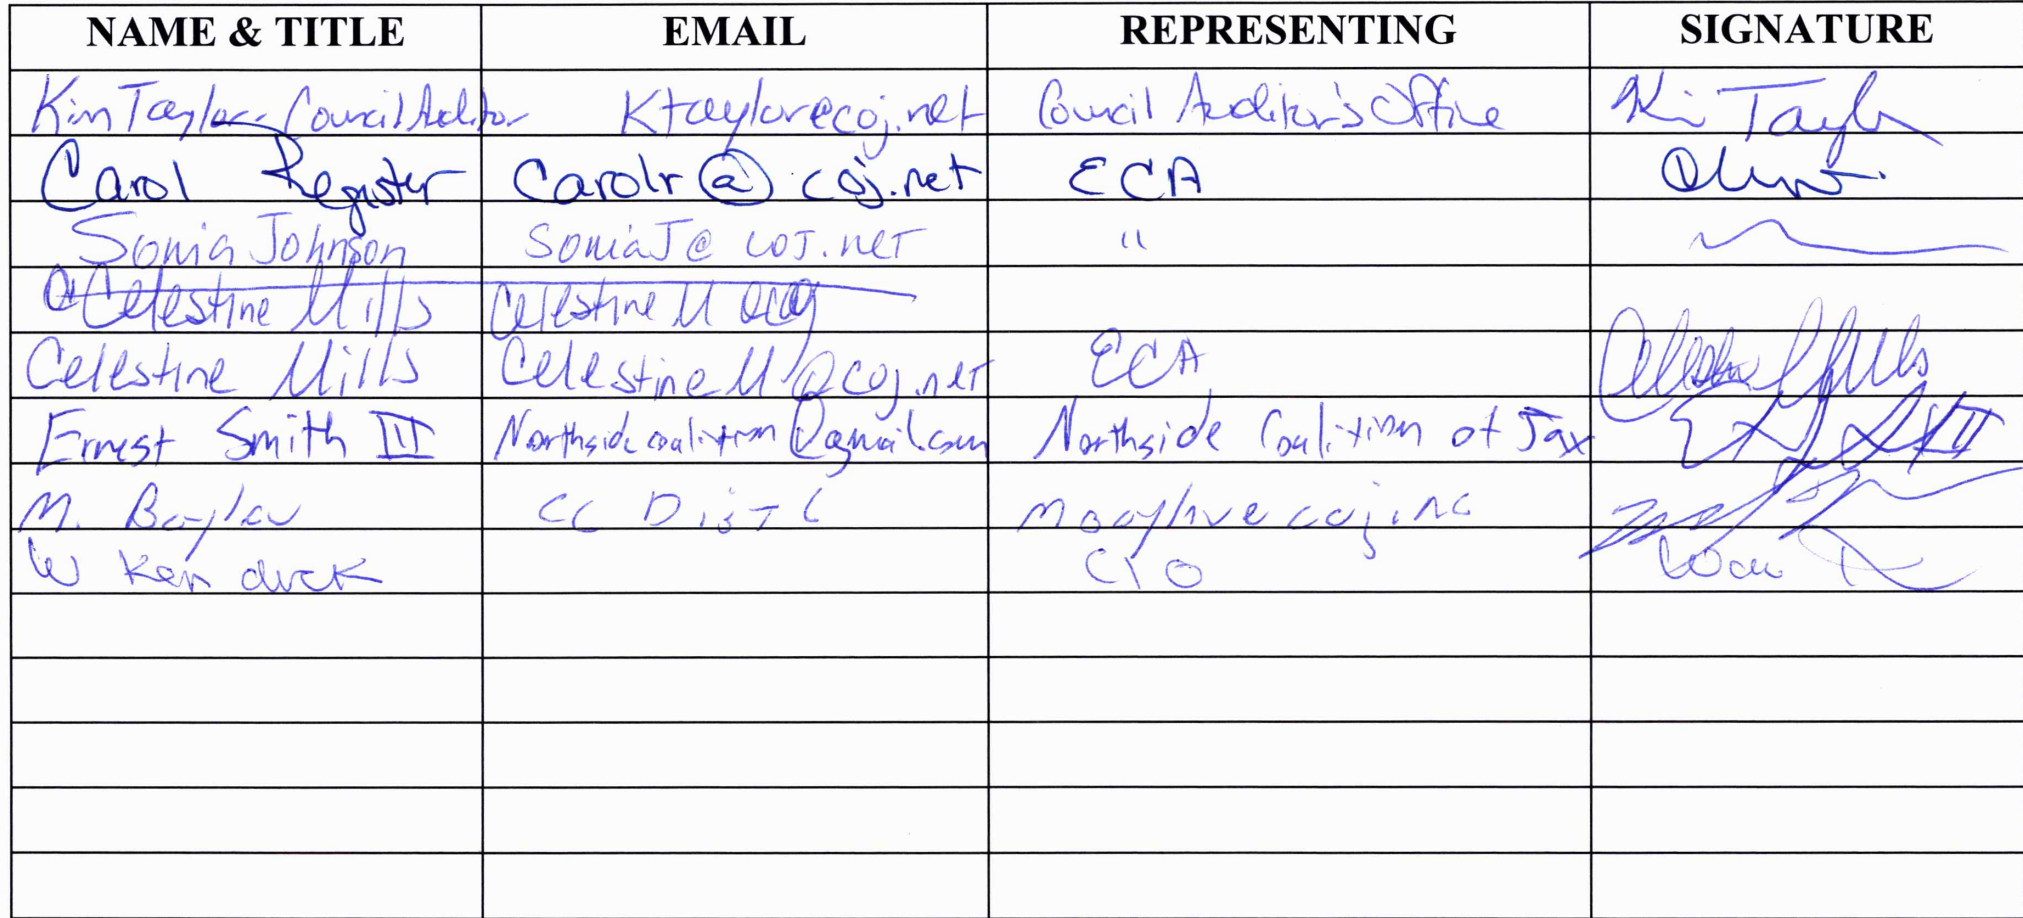 NAME & TITLE EMAIL REPRESENTING SIGNATURE
Kim Taylor - Council Auditor Ktaylor@coj.net Council Auditor's Office Ki Taylor
Carol Register Carolr@coj.net ECA
Sonia Johnson SoniaJ@coj.net "
Celestine Mills Celestine M @coj
Celestine Mills CelestineM@coj.net ECA Celestine Mills
Ernest Smith III Northsidecoalition@gmail.com Northside Coalition of Jax
M. CC Dist
W Kendrick C10